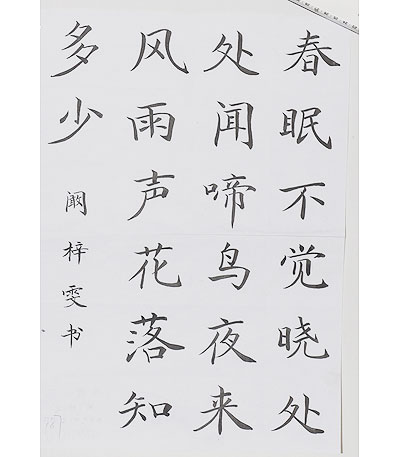 春眠不觉晓处
处闻啼鸟夜来
风雨声花落知
多少
阚梓雯书